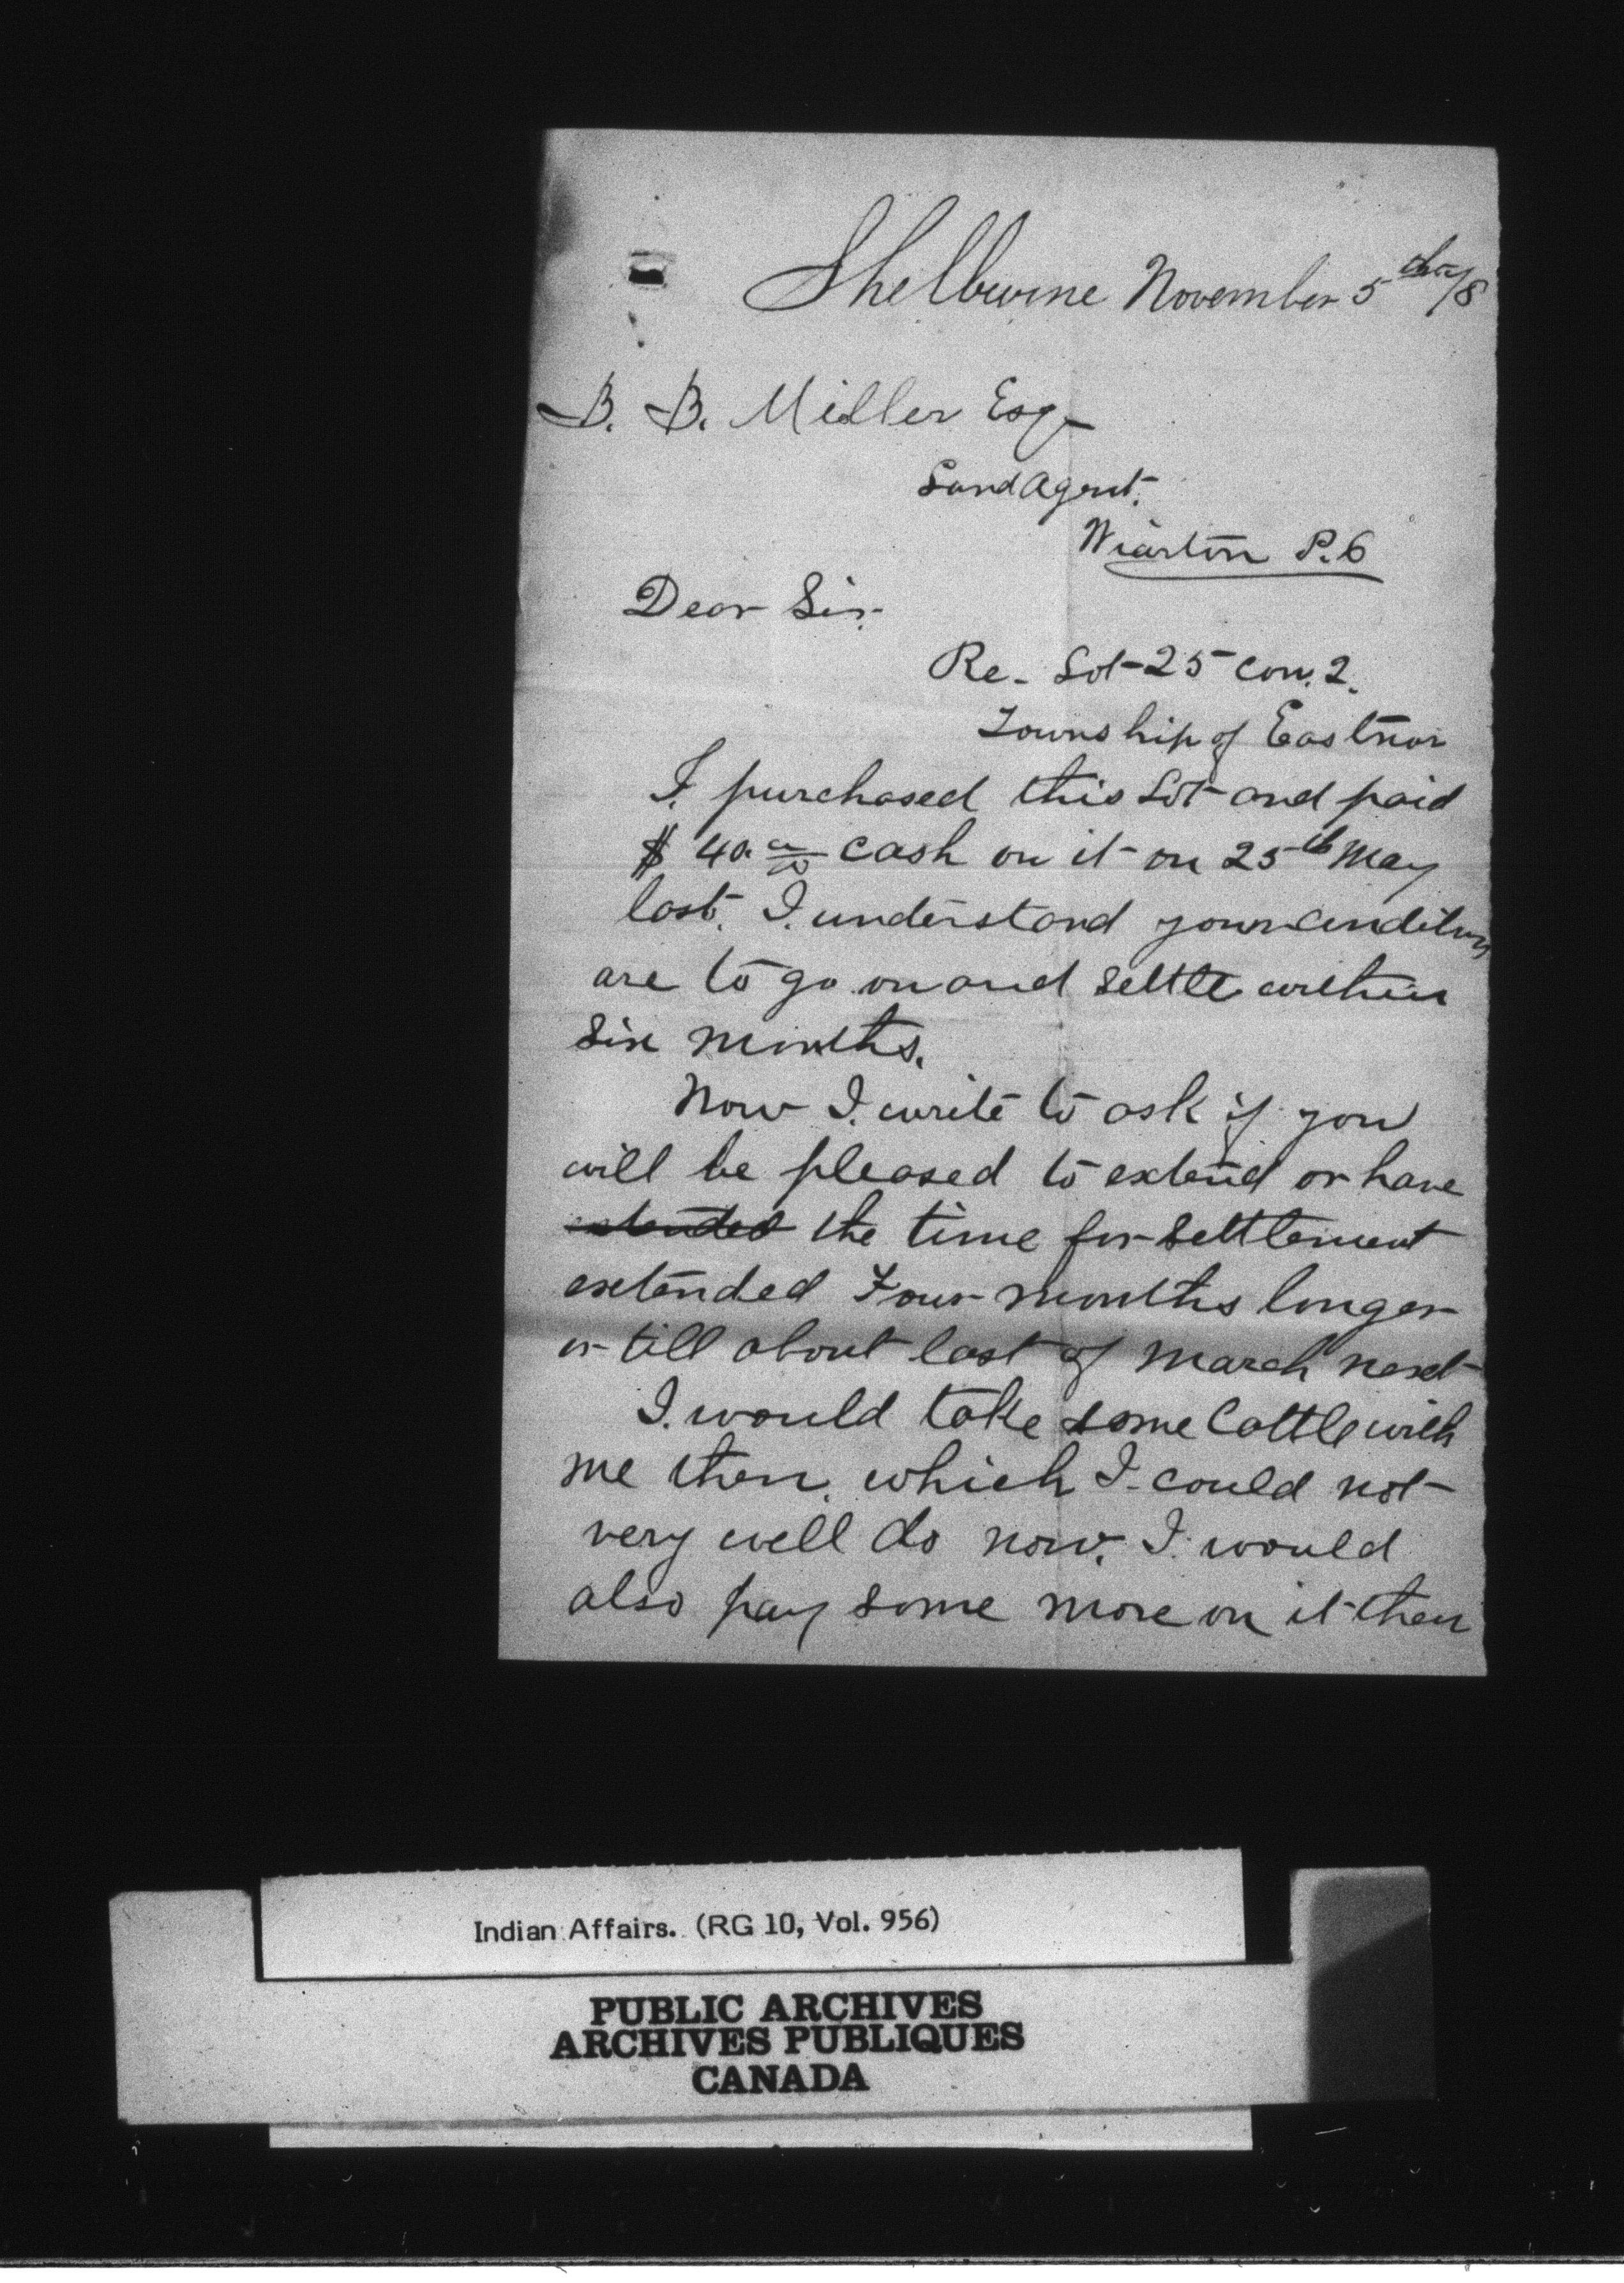 Shelburne November 5th
B. B. Miller Esq
Land Agent.
Wiarton P.O
Dear Sir.
Re. Lot 25 Con. 2.
Township of Eastnor
I purchased this Lot and paid
$ 40. cash on it on 25th May
last. I understand your conditions
are to go on and settle within
six months.
Now I write to ask if you
will be pleased to extend or have
extended the time for settlement
extended Four months longer
or till about last of March next
I would take some Cattle with
me then. which I could not
very well do now. I would
also pay some more on it then
Indian Affairs. (RG 10, Vol. 956)
PUBLIC ARCHIVES
ARCHIVES PUBLIQUES
CANADA